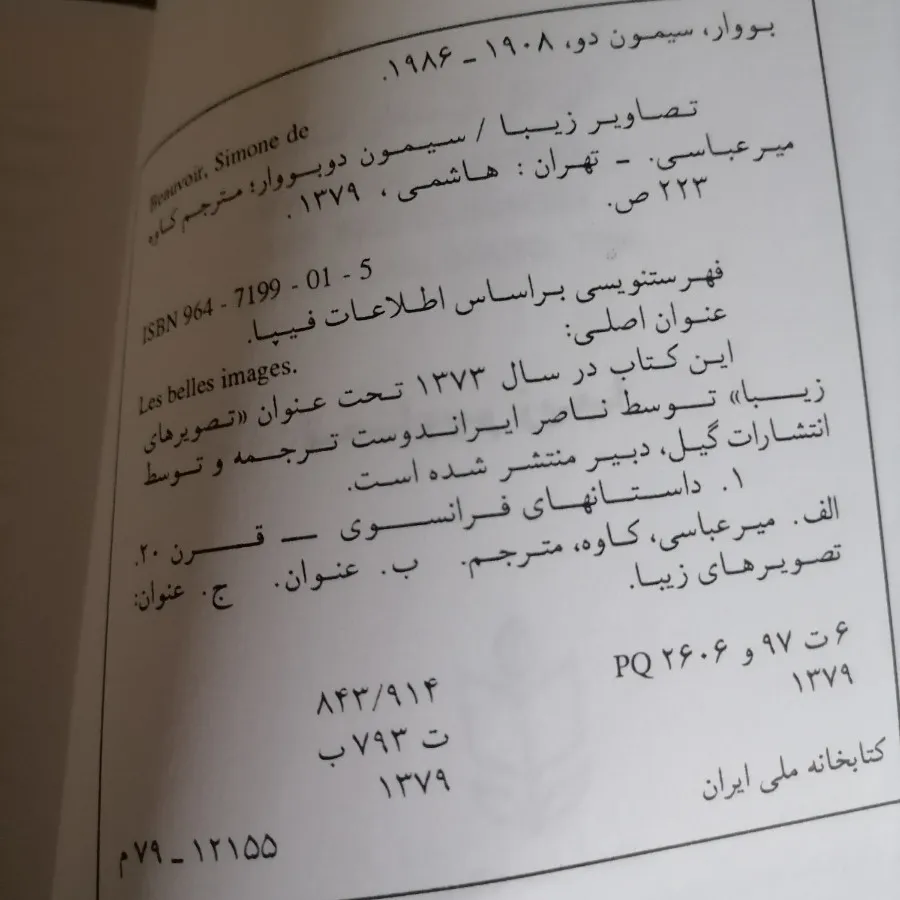 بووار، سیمون دو، ۱۹۰۸ ـ ۱۹۸۶.
Beauvoir, Simone de
تصاویر زیبا / سیمون دوبووار؛ مترجم کاوه
میرعباسی. ـ تهران: هاشمی، ۱۳۷۹.
۲۲۳ ص.
ISBN 964 - 7199 - 01 - 5
فهرستنویسی براساس اطلاعات فیپا.
عنوان اصلی:
Les belles images.
این کتاب در سال ۱۳۷۳ تحت عنوان «تصویرهای
زیبا» توسط ناصر ایراندوست ترجمه و توسط
انتشارات گیل، دبیر منتشر شده است.
۱. داستانهای فرانسوی — قرن ۲۰.
الف. میرعباسی، کاوه، مترجم. ب. عنوان. ج. عنوان:
تصویرهای زیبا.
۶ ت ۹۷ و PQ ۲۶۰۶
۸۴۳/۹۱۴
۱۳۷۹
ت ۷۹۳ ب
۱۳۷۹
کتابخانه ملی ایران
۱۲۱۵۵ ـ ۷۹ م